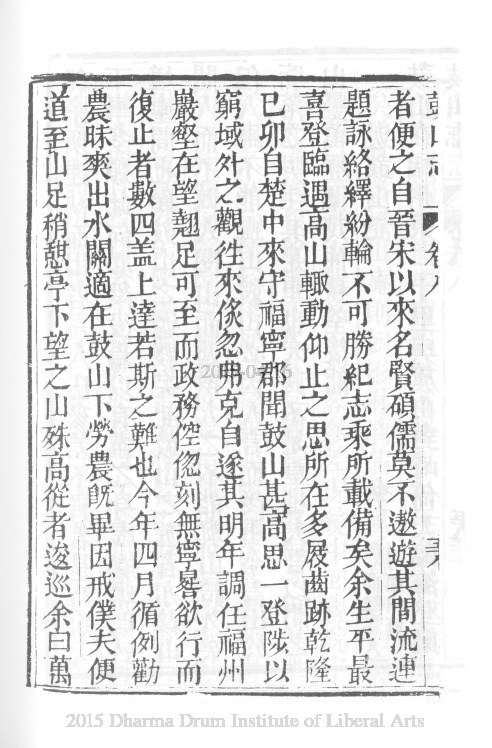 鼓山志 卷八 三六
者便之自晉宋以來名賢碩儒莫不遨遊其間流連
題詠絡繹紛輪不可勝紀志乘所載備矣余生平最
喜登臨遇高山輙動仰止之思所在多屐齒跡乾隆
已卯自楚中來守福寧郡聞鼓山甚高思一登陟以
窮域外之觀徃來倏忽弗克自遂其明年調任福州
巖壑在望翹足可至而政務倥偬刻無寧晷欲行而
復止者數四盖上達若斯之難也今年四月循例勸
農昧爽出水關適在鼓山下勞農旣畢因戒僕夫便
道至山足稍憩亭下望之山殊高從者逡巡余曰萬
2015 Dharma Drum Institute of Liberal Arts